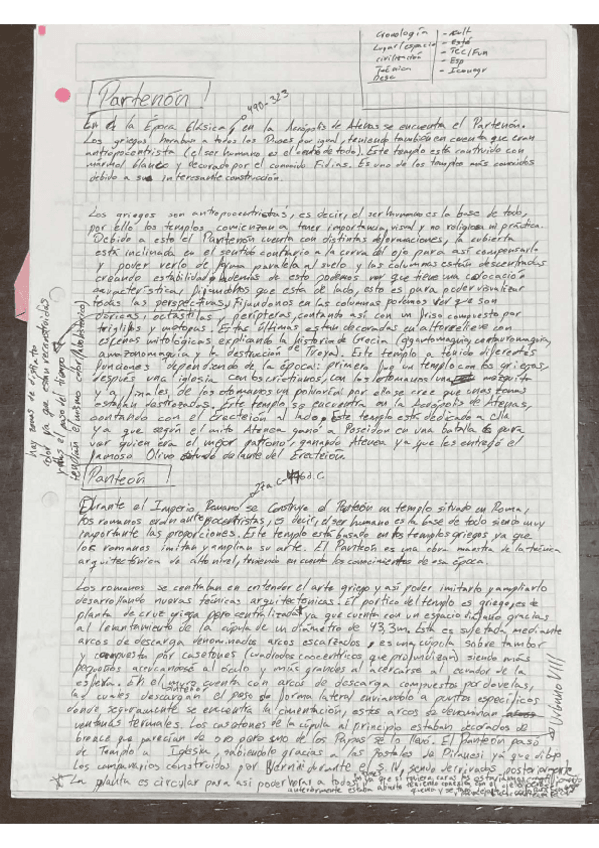 Cronología
Lugar/espacio
civilización
Técnica
- cult
- Esté
- Tec/Fun
- Esp
- Iconogr
Partenón
490-323
En la Época Clásica, en la Acrópolis de Atenas se encuentra el Partenón.
Los griegos honraban a todos los Dioses por igual, teniendo también en cuenta que eran
antropocentrista (el ser humano es el centro de todo). Este templo está contruido con
mármol blanco y decorado por el conocido Fidias. Es uno de los templos más conocidos
debido a su interesante construcción.
Los griegos son antropocentristas, es decir, el ser humano es la base de todo,
por ello los templos, comienzan a tener importancia visual y no religiosa ni práctica.
Debido a esto el Partenón cuenta con distintas deformaciones, la cubierta
está inclinada en el sentido contrario a la corva del ojo para así compensarlo
y poder verlo de forma paralela al suelo y las columnas están descentradas
creando estabilidad además de esto podemos ver que tiene una colocación
característica, fijándonos que esta de lado, esto es para poder visualizar
todas las perspectivas, Fijándonos en las columnas podemos ver que son
dóricas, octástilas y perípteras, contanto así con un friso compuesto por
triglifos y metopas. Estas últimas están decoradas en altorrelieve con
escenas mitológicas expliando la historia de Grecia (gigantomaquia, centauromaquia,
amazonomaquia y la destrucción de Troya). Este templo a tenido diferentes
funciones dependiendo de la época: primero fue un templo con los griegos,
después una iglesia con los cristianos, con los otomanos una mezquita
y a finales de los otomanos un polvorín por ello se cree que unas zonas
estaban destrozadas. Este templo se encuentra en la Acrópolis de Atenas,
contando con el Erecteión al lado, Este templo está dedicado a Ella
ya que según el mito Atenea ganó a Poseidon en una batalla para
ver quien era el mejor patrono, ganando Atenea ya que les entregó el
famoso Olivo delante del Erecteión
hay zonas de distinto
color ya que están reconstruidas
y tras el paso del tiempo
tendrán el mismo color
Panteón
d.C.
Durante el Imperio Romano se construye el Panteón un templo situado en Roma,
los romanos eran antropocentristas, es decir, el ser humano es la base de todo siendo muy
importante las proporciones. Este templo está basado en los templos griegos ya que
los romanos imitan y amplían su arte. El Panteón es una obra maestra de la técnica
arquitectónica de alto nivel, teniendo en cuenta los conocimientos de esa época.
Los romanos se centraban en entender el arte griego y así poder imitarlo y ampliarlo
desarrollando nuevas técnicas arquitectónicas. El pórtico del templo es griego, es de
planta de cruz griega pero centralizada ya que cuenta con un espacio diáfano gracias
al levantamiento de la cúpula de un diámetro de 43,3m. Esta es sujetada mediante
arcos de descarga denominados arcos escarzados, es una cúpula sobre tambor
y compuesta por casetones (cuadrados concentricos que profundizan) siendo más
pequeños acercandose al óculo y más grandes al acercarse al
esfera. En el muro cuenta con arcos de descarga compuestos por dovelas,
las cuales descargan el peso de forma lateral enviandolo a puntos específicos
donde seguramente se encuentra la cimentación, estos arcos se denominan
ventanas termales. Los casetones de la cúpula al principio estaban decorados de
bronce que parecían de oro pero uno de los Papas se lo llevó. El Panteón pasó
de Templo a Iglesia, sabiendolo gracias a las Postales de Piranesi ya que dibujo
los campanarios construidos por Bernini durante el s. , siendo derivados posteriormente
Urbano VIII
* La planta es circular para así poder orar a todos los Dioses